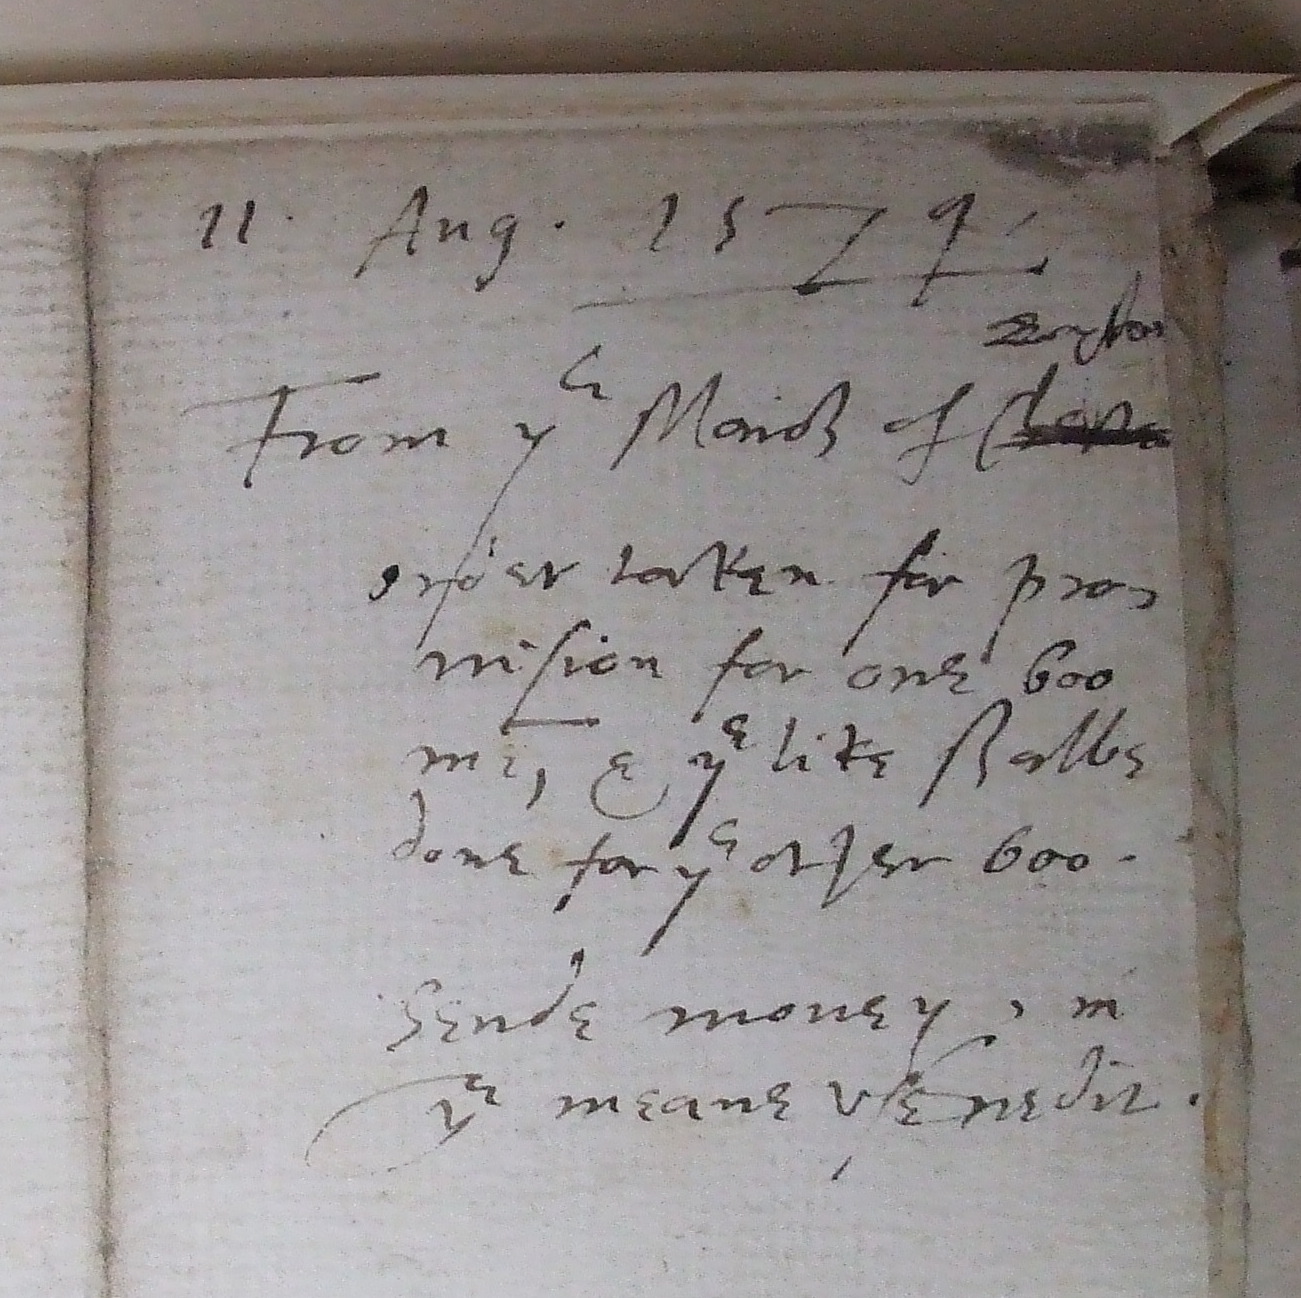 11. Aug. 1579.
From yᵉ Maior of
order taken for pro
uision for one 600
mē, & yᵉ like shalbe
done for yᵉ other 600.
Sende money, in
yᵉ meane vse credit.